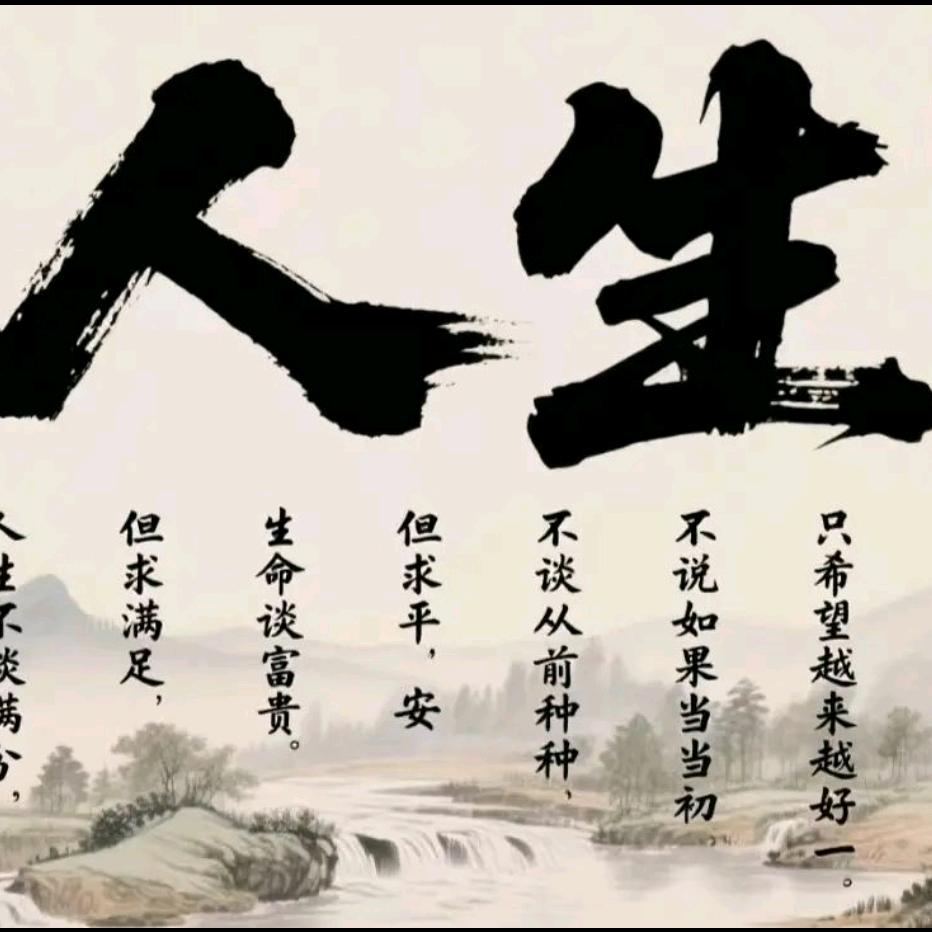 人生
人生不谈满分，
但求满足，
生命谈富贵。
但求平，安
不谈从前种种、
不说如果当当初
只希望越来越好一。